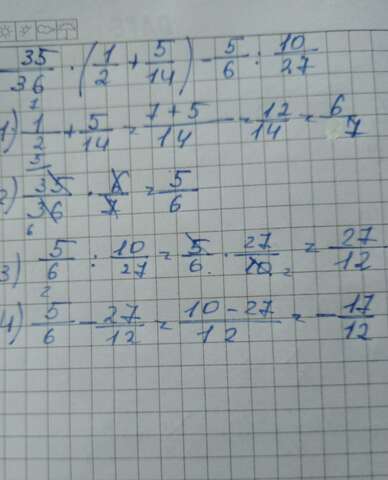 35/36 · (1/2 + 5/14) - 5/6 : 10/27
1) 1/2 + 5/14 = 7+5/14 = 12/14 = 6/7
2) 35/36 · 6/7 = 5/6
3) 5/6 : 10/27 = 5/6 · 27/10 = 27/12
4) 5/6 - 27/12 = 10-27/12 = -17/12